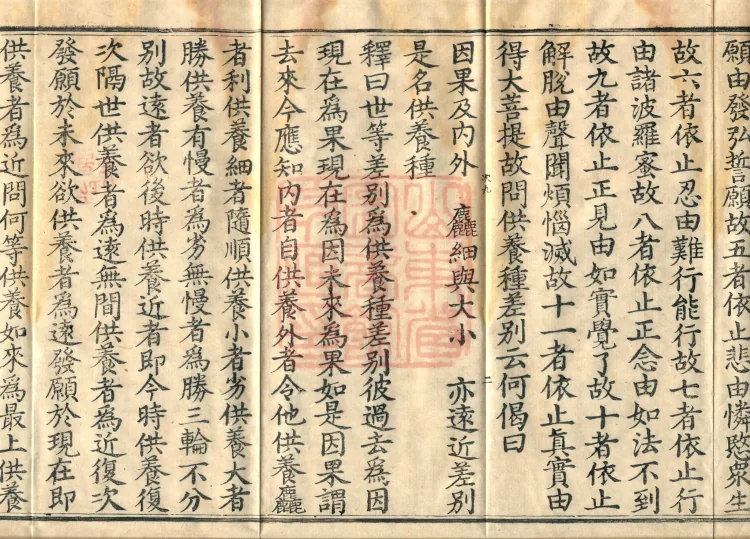 願由發弘誓願故五者依止悲由憐愍衆生
故六者依止忍由難行能行故七者依止行
由諸波羅蜜故八者依止正念由如法不到
故九者依止正見由如實覺了故十者依止
解脫由聲聞煩惱滅故十一者依止真實由
得大菩提故問供養種差別云何偈曰
因果及内外 麤細與大小 亦遠近差別
是名供養種
釋曰世等差別為供養種差別彼過去為因
現在為果現在為因未來為果如是因果謂
去來今應知内者自供養外者令他供養麤
者利供養細者隨順供養小者劣供養大者
勝供養有慢者為劣無慢者為勝三輪不分
別故遠者欲後時供養近者即今時供養復
次隔世供養者為遠無間供養者為近復次
發願於未來欲供養者為遠發願於現在即
供養者為近問何等供養如來為最上供養